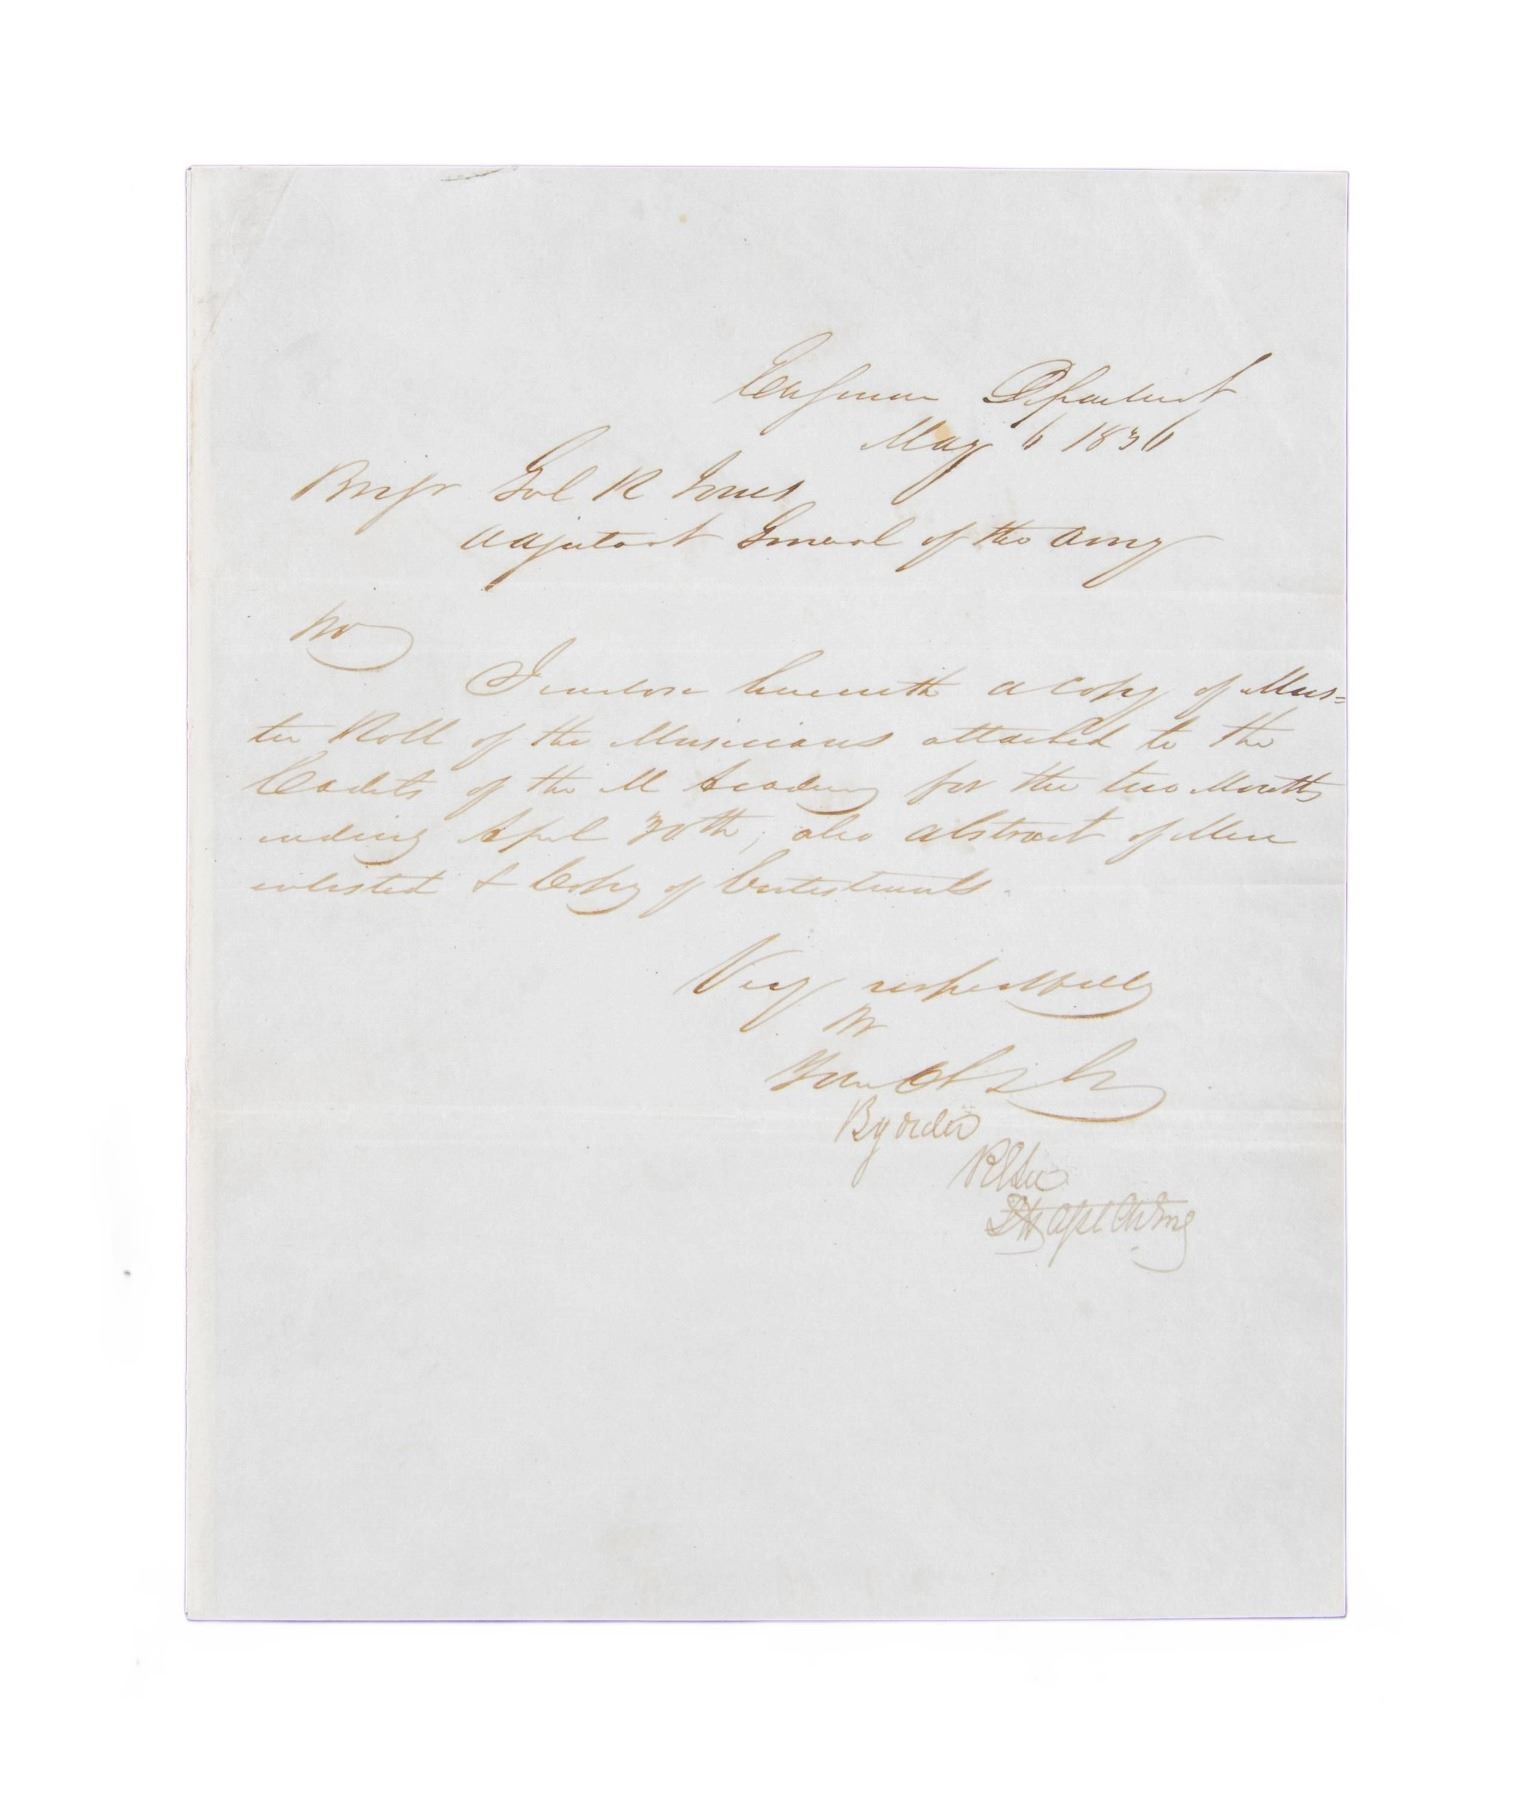 Engineer Department
May 6 1836
Brigr Genl R Jones
Adjutant General of the Army
Sir
I enclose herewith a copy of Mus=
ter Roll of the Musicians attached to the
Cadets of the M Academy for the two Months
ending April 30th, also abstract of Men
enlisted & Copy of Enlistments.
Very respectfully
Sir
Your Obt St
By order
R E Lee